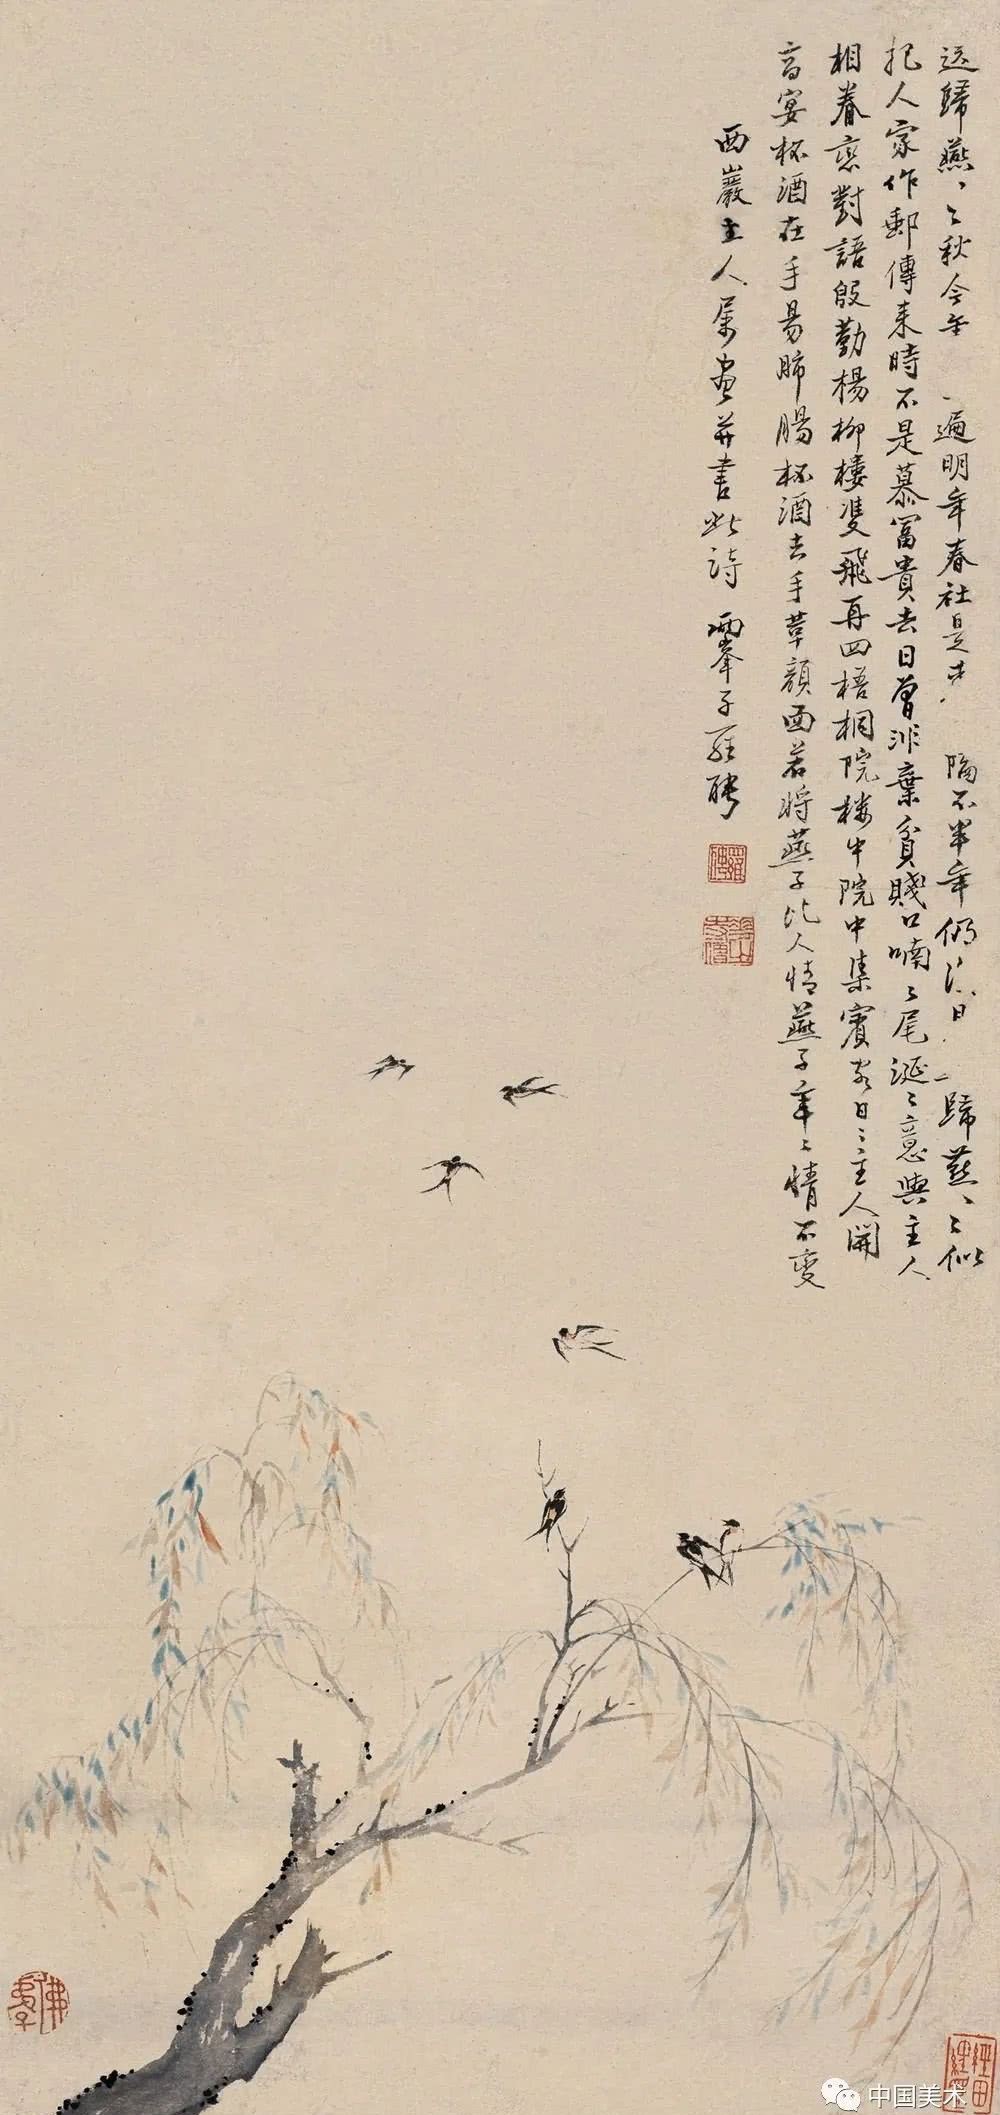 送歸燕〻〻秋今年 一遍明年春社是 隔不半年仍 日 一歸燕〻〻似
把人家作郵傳来時不是慕富貴去日曾非棄貧賤口喃〻尾涎〻意與主人
相眷恋對語殷勤楊柳樓雙飛再四梧桐院楼中院中集賓客日〻主人開
高宴杯酒在手易肺腸杯酒去手革顔面若將燕子比人情燕子年〻情不變
西巖主人屬画并書此詩 兩峯子羅聘
中国美术